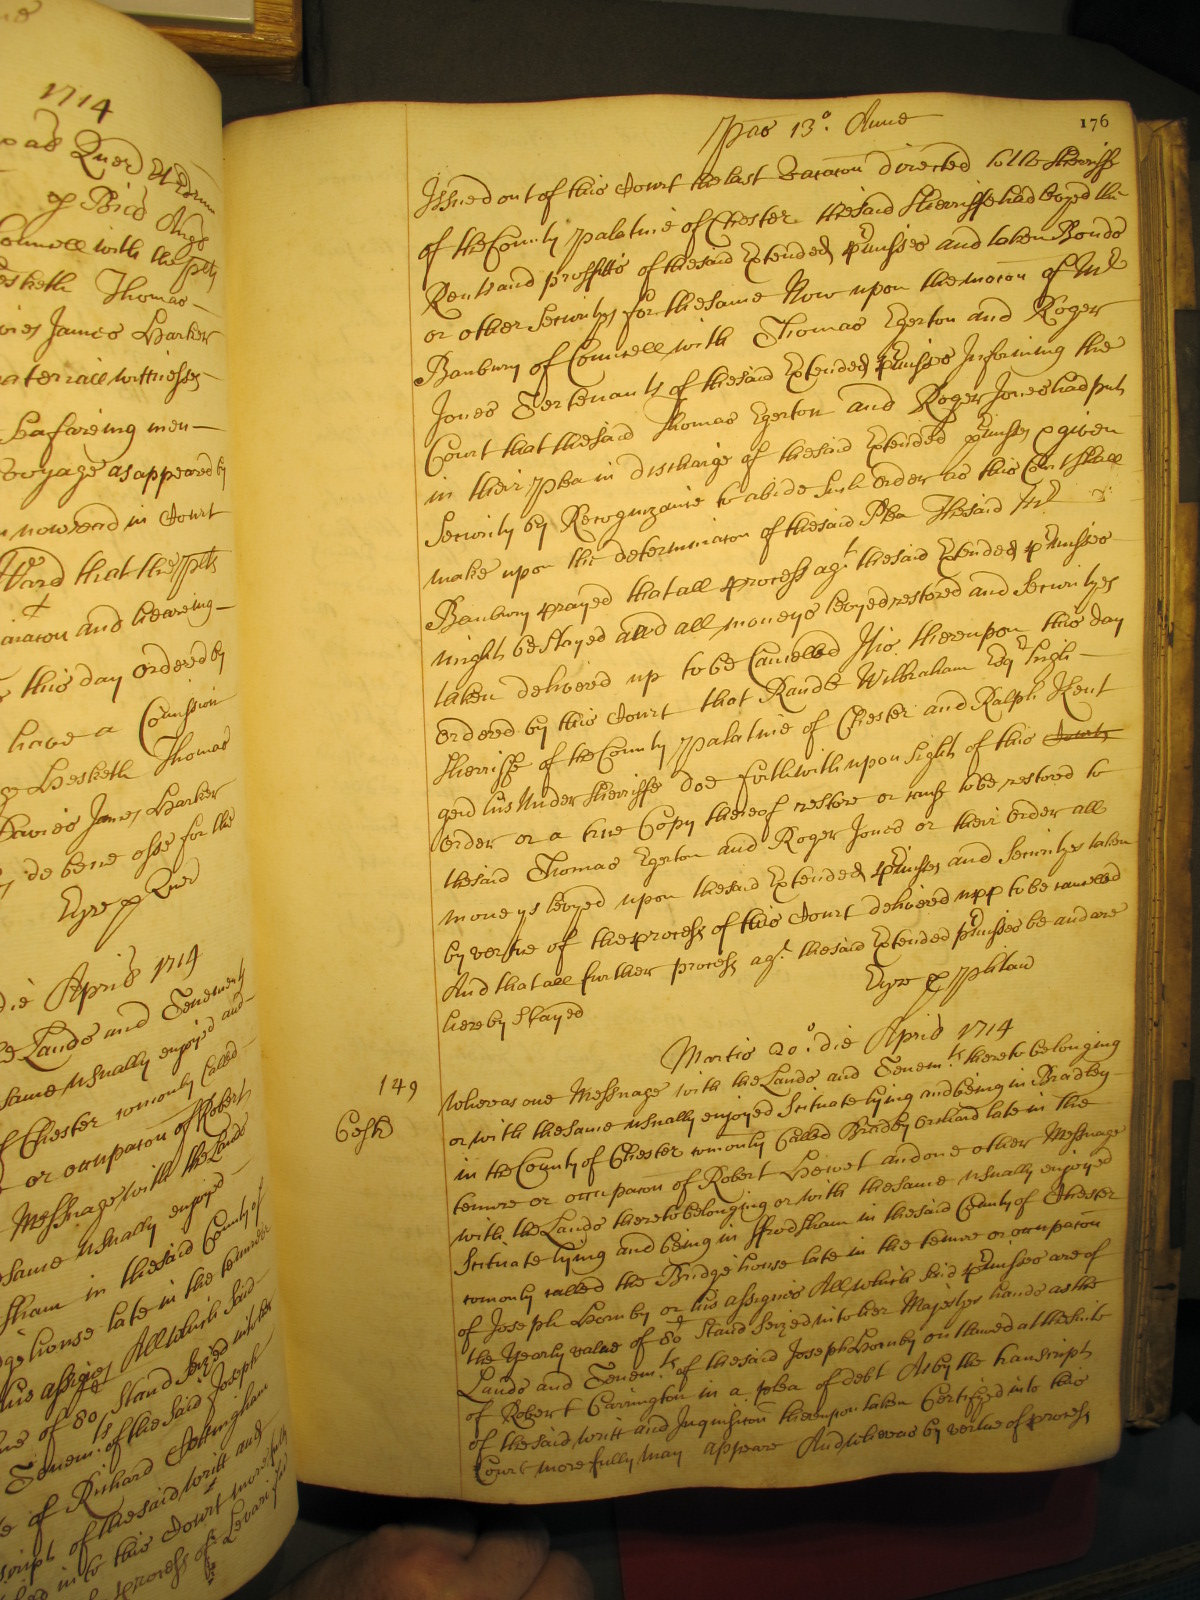 1714
Quer
Councell with the Plts
Hesketh Thomas
James Harker
materiall wittnesses
Seafareing men
Voyage as appeared by
now read in Court
Ward that the Plts
and heareing
this day Ordered by
have a Comission
Hesketh Thomas
Davies James Harker
de bene esse for the
Eyre p Quer
die April 1714
Lands and Tenemts
same usually enjoyed and
of Chester comonly Called
or occupacon of Robert
Messuage with the Lands
same usually enjoyed
sham in the said County of
house late in the tenure or
his assignes All which said
of 80 Stand Seized into her
Tenemts of the said Joseph
of Richard
of the said writt and
into this Court more fully
process of Levari
Pas 13º. Anne
176
Issued out of this Court the last Vacacon directed to the Sherriffe
of the County Palatine of Chester the said Sherriffe had levyed the
Rents and proffitts of the said Extended pmisses and taken Bonds
or other Securityes for the same Now upon the mocon of Mr
Banbury of Councell with Thomas Egerton and Roger
Jones Tertenants of the said Extended pmisses Informing the
Court that the said Thomas Egerton and Roger Jones had put
in their Plea in discharge of the said Extended pmisses & given
Security by Recognizance to abide Such Order as this Court Shall
make upon the determinacon of the said Plea The said Mr
Banbury prayed that all process agt the said Extended pmisses
might be Stayed and all moneys levyed restored and Securityes
taken delivered up to be Cancelled It is thereupon this day
Ordered by this Court that Randle Wilbraham Esqr high
Sherriffe of the County Palatine of Chester and Ralph Kent
gent his Under Sherriffe doe forthwith upon Sight of this Court
Order or a true Copy thereof restore or cause to be restored to
the said Thomas Egerton and Roger Jones or their Order all
moneys levyed upon the said Extended pmisses and Securityes taken
by vertue of the process of this Court delivered upp to be cancelled
And that all further process agt. the said Extended pmisses be and are
hereby Stayed
Eyre p Phlaw
Martis 20º. die April 1714
149
Cestr
Whereas one Messuage with the Lands and Tenemts. thereto belonging
or with the same usually enjoyed Scituate lying and being in Bradley
in the County of Chester comonly Called Bradly Orchard late in the
tenure or occupacon of Robert Hewet and one other Messuage
with the Lands thereto belonging or with the same usually enjoyed
Scituate lying and being in ffrodsham in the said County of Chester
comonly called the Bridge house late in the tenure or occupacon
of Joseph Hornby or his assignes All which said pmisses are of
the Yearly value of 80 Stand Seized into her Majestyes hands as the
Lands and Tenemts. of the said Joseph Hornby outlawed at the Suite
of Robert Carrington in a plea of debt As by the transcript
of the said writt and Inquisicon thereupon taken Certifyed into this
Court more fully may appeare And whereas by vertue of process